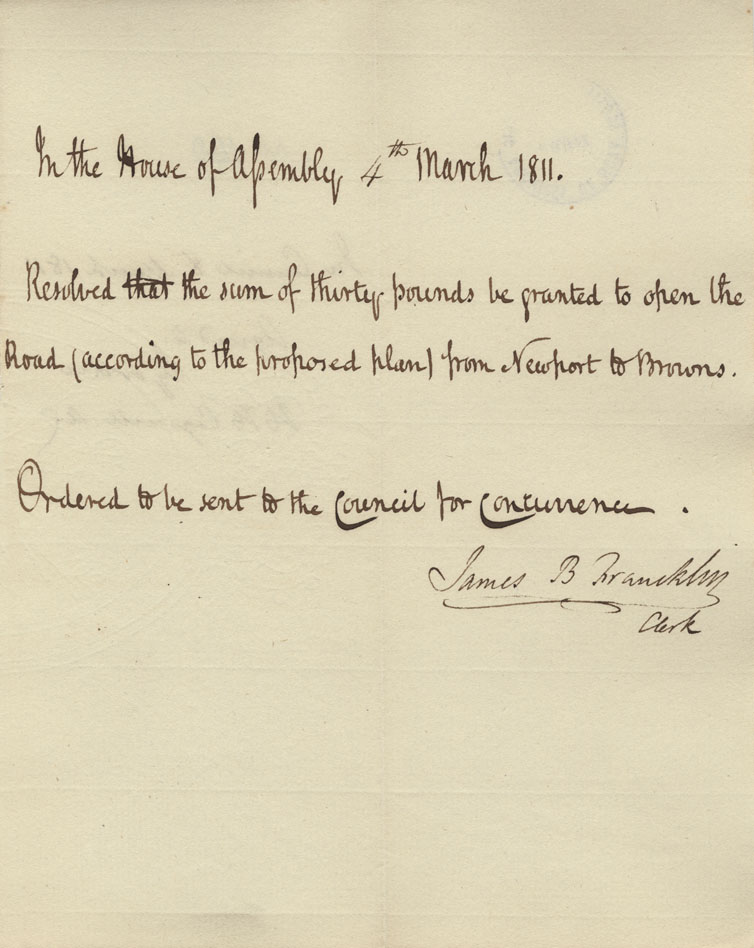 In the House of Assembly 4th March 1811.
Resolved that the sum of thirty pounds be granted to open the
Road (according to the proposed plan) from Newport to Browns.
Ordered to be sent to the Council for Concurrence.
James B Francklin
Clerk